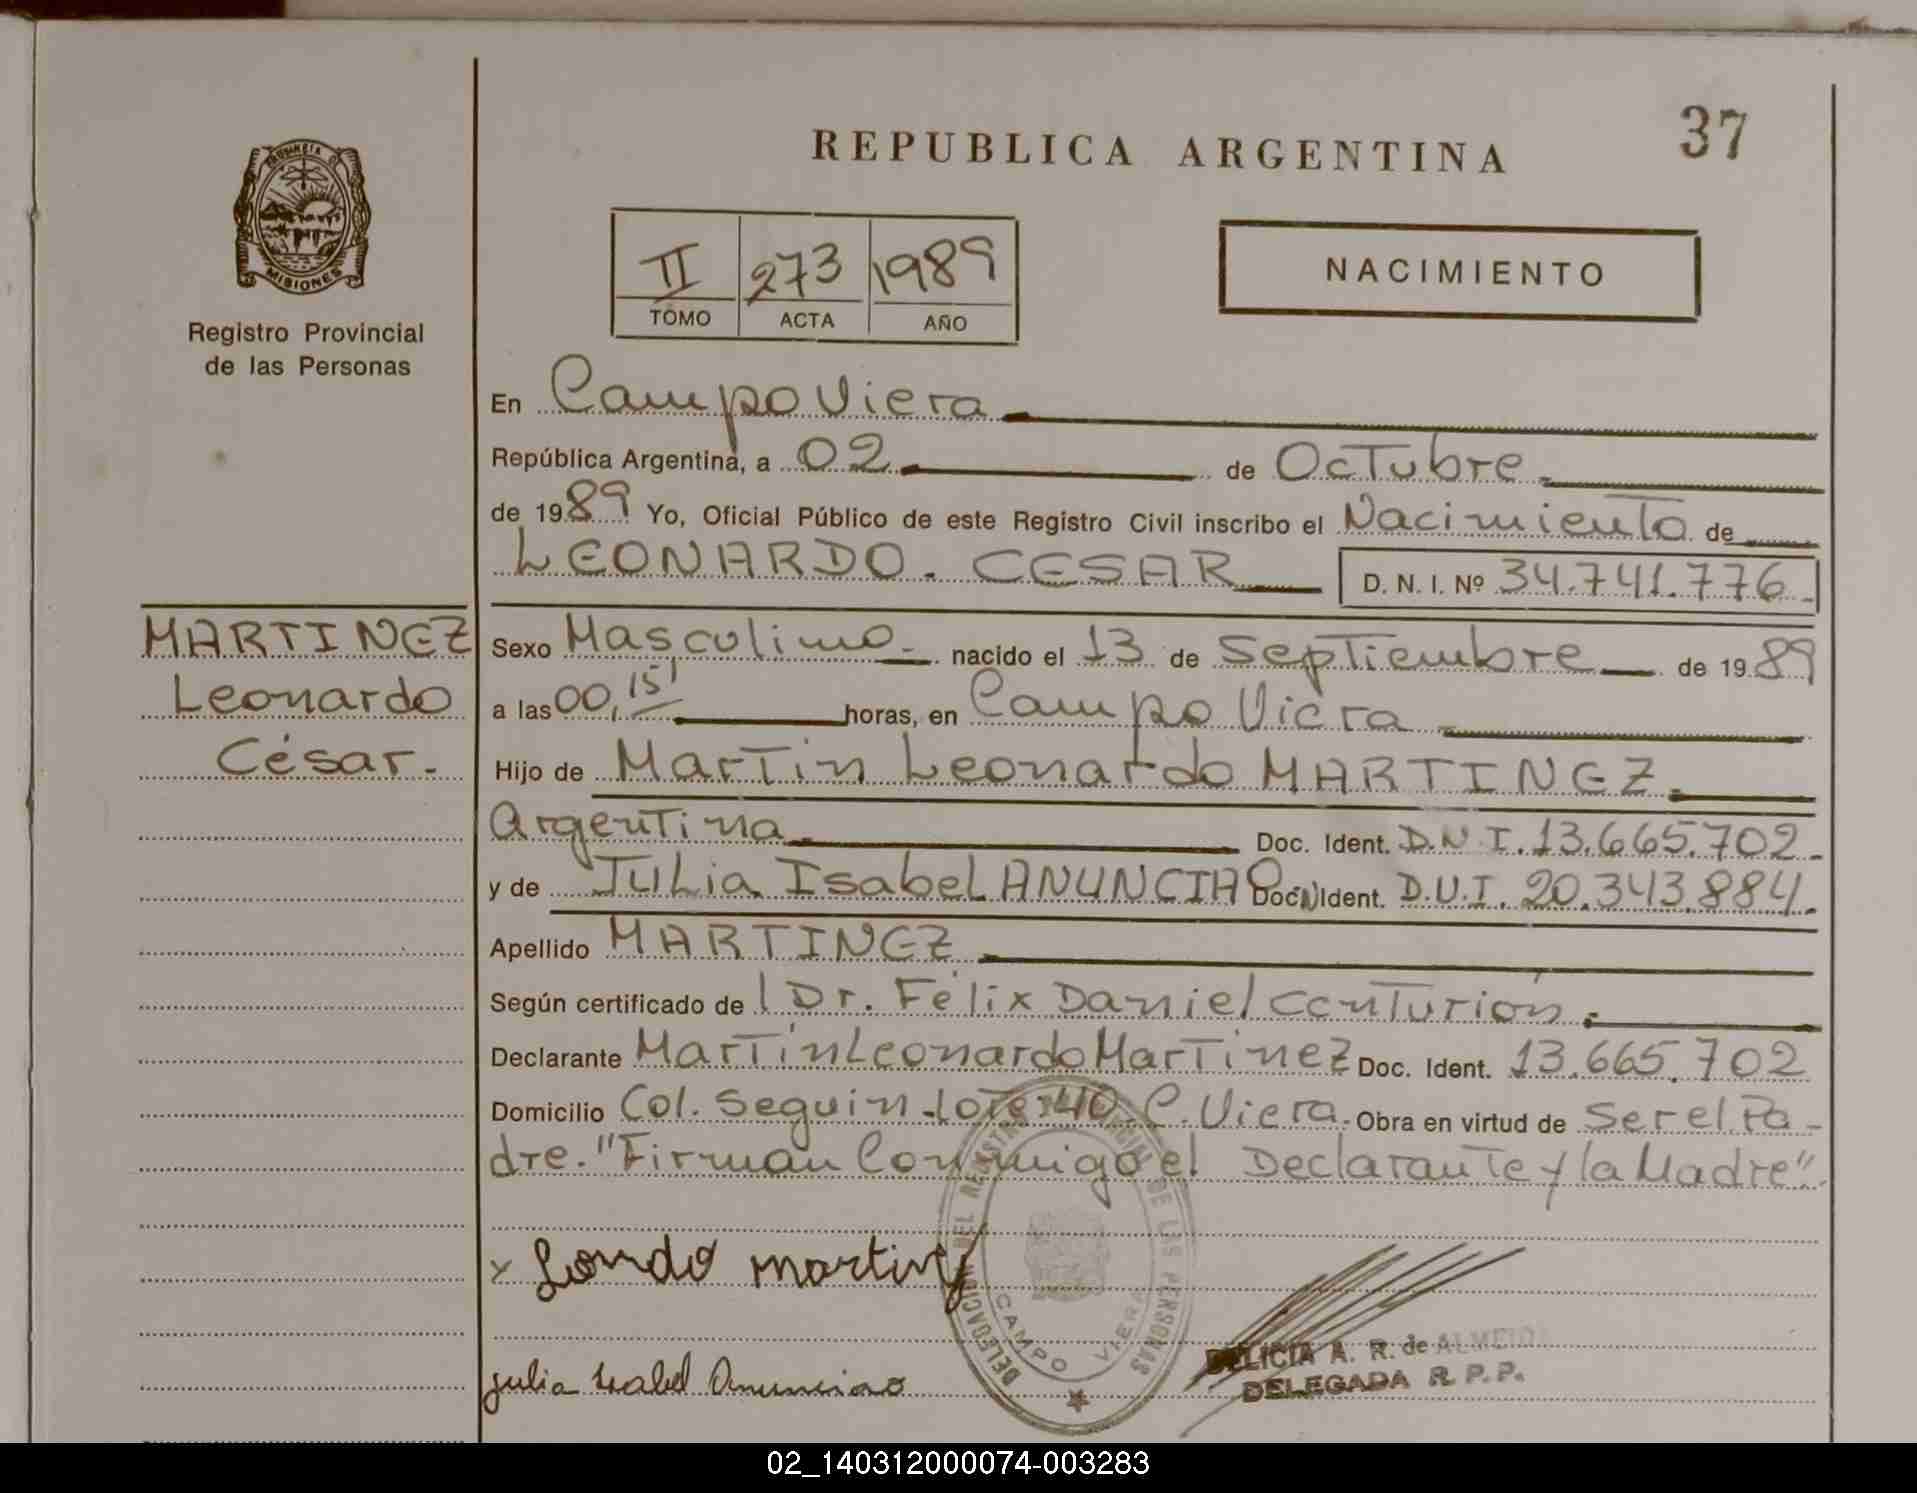 REPUBLICA ARGENTINA
37
PROVINCIA DE
MISIONES
Registro Provincial
de las Personas
II 273 1989
TOMO ACTA AÑO
NACIMIENTO
En Campo Viera
República Argentina, a 02 de Octubre
de 1989 Yo, Oficial Público de este Registro Civil inscribo el Nacimiento de
LEONARDO. CESAR D. N. I. Nº 34.741.776.
MARTINEZ
Leonardo
César.
Sexo Masculino nacido el 13 de Septiembre de 1989
a las 00,15' horas, en Campo Viera
Hijo de Martin Leonardo MARTINEZ
Argentina Doc. Ident. D.N.I. 13.665.702.
y de Julia Isabel ANUNCIAÇÓN Doc. Ident. D.U.I. 20.343.884.
Apellido MARTINEZ
Según certificado de l Dr. Félix Daniel Centurión.
Declarante Martín Leonardo Martinez Doc. Ident. 13.665.702
Domicilio Col. Seguin Lote 40 C. Viera. Obra en virtud de Ser el Pa-
dre. "Firman Conmigo el Declarante y la Madre".
DELEGACION DEL REGISTRO PROVINCIAL DE LAS PERSONAS
CAMPO VIERA
x Leonardo Martinez
DELICIA A. R. de ALMEIDA
DELEGADA R. P. P.
Julia Isabel
02_140312000074-003283